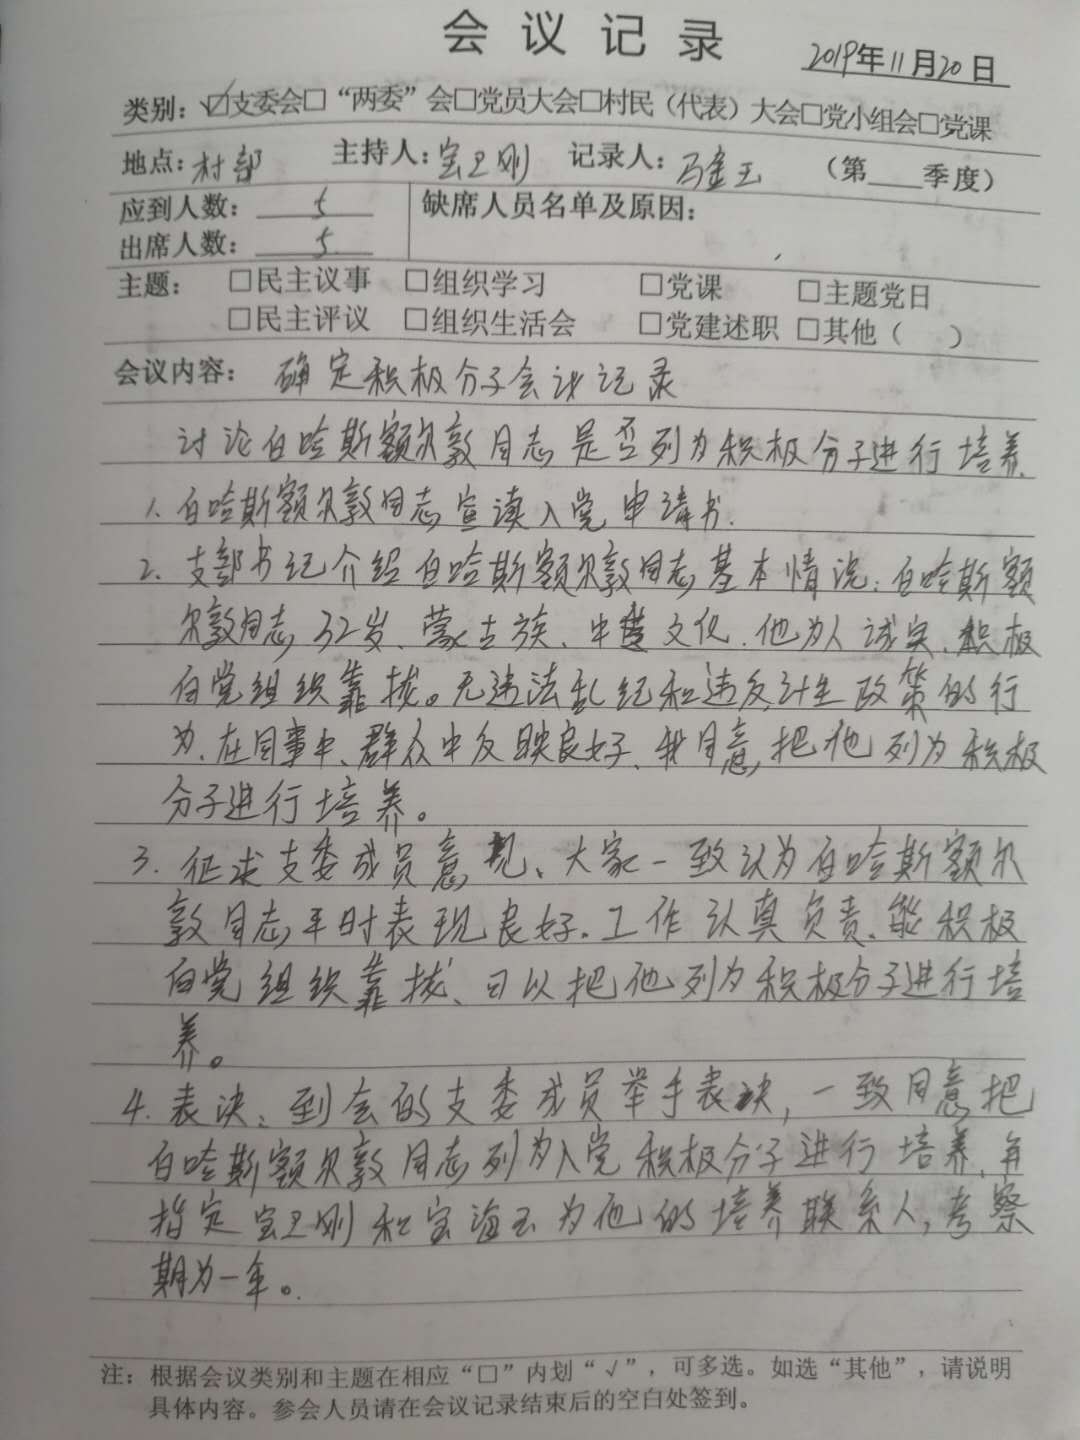 会议记录
2019年11月20日
类别：☑支委会□“两委”会□党员大会□村民（代表）大会□党小组会□党课
地点：村部 主持人：宝卫刚 记录人：马金玉 （第 季度）
应到人数： 5 缺席人员名单及原因：
出席人数： 5
主题： □民主议事 □组织学习 □党课 □主题党日
□民主评议 □组织生活会 □党建述职 □其他（ ）
会议内容： 确定积极分子会议记录
讨论白哈斯额尔敦同志是否列为积极分子进行培养.
1、白哈斯额尔敦同志宣读入党申请书.
2、支部书记介绍白哈斯额尔敦同志基本情况：白哈斯额
尔敦同志，32岁、蒙古族、中 文化.他为人诚实、积极
向党组织靠拢。无违法乱纪和违反计生政策的行
为、在同事中、群众中反映良好、我同意，把他列为积极
分子进行培养。
3. 征求支委成员意见、大家一致认为白哈斯额尔
敦同志平时表现良好.工作认真负责、能积极
向党组织靠拢、可以把他列为积极分子进行培
养。
4. 表决：到会的支委成员举手表决，一致同意把
白哈斯额尔敦同志列为入党积极分子进行培养，并
指定宝卫刚和宝海玉为他的培养联系人，考察
期为一年。
注：根据会议类别和主题在相应“□”内划“√”，可多选。如选“其他”，请说明
具体内容。参会人员请在会议记录结束后的空白处签到。